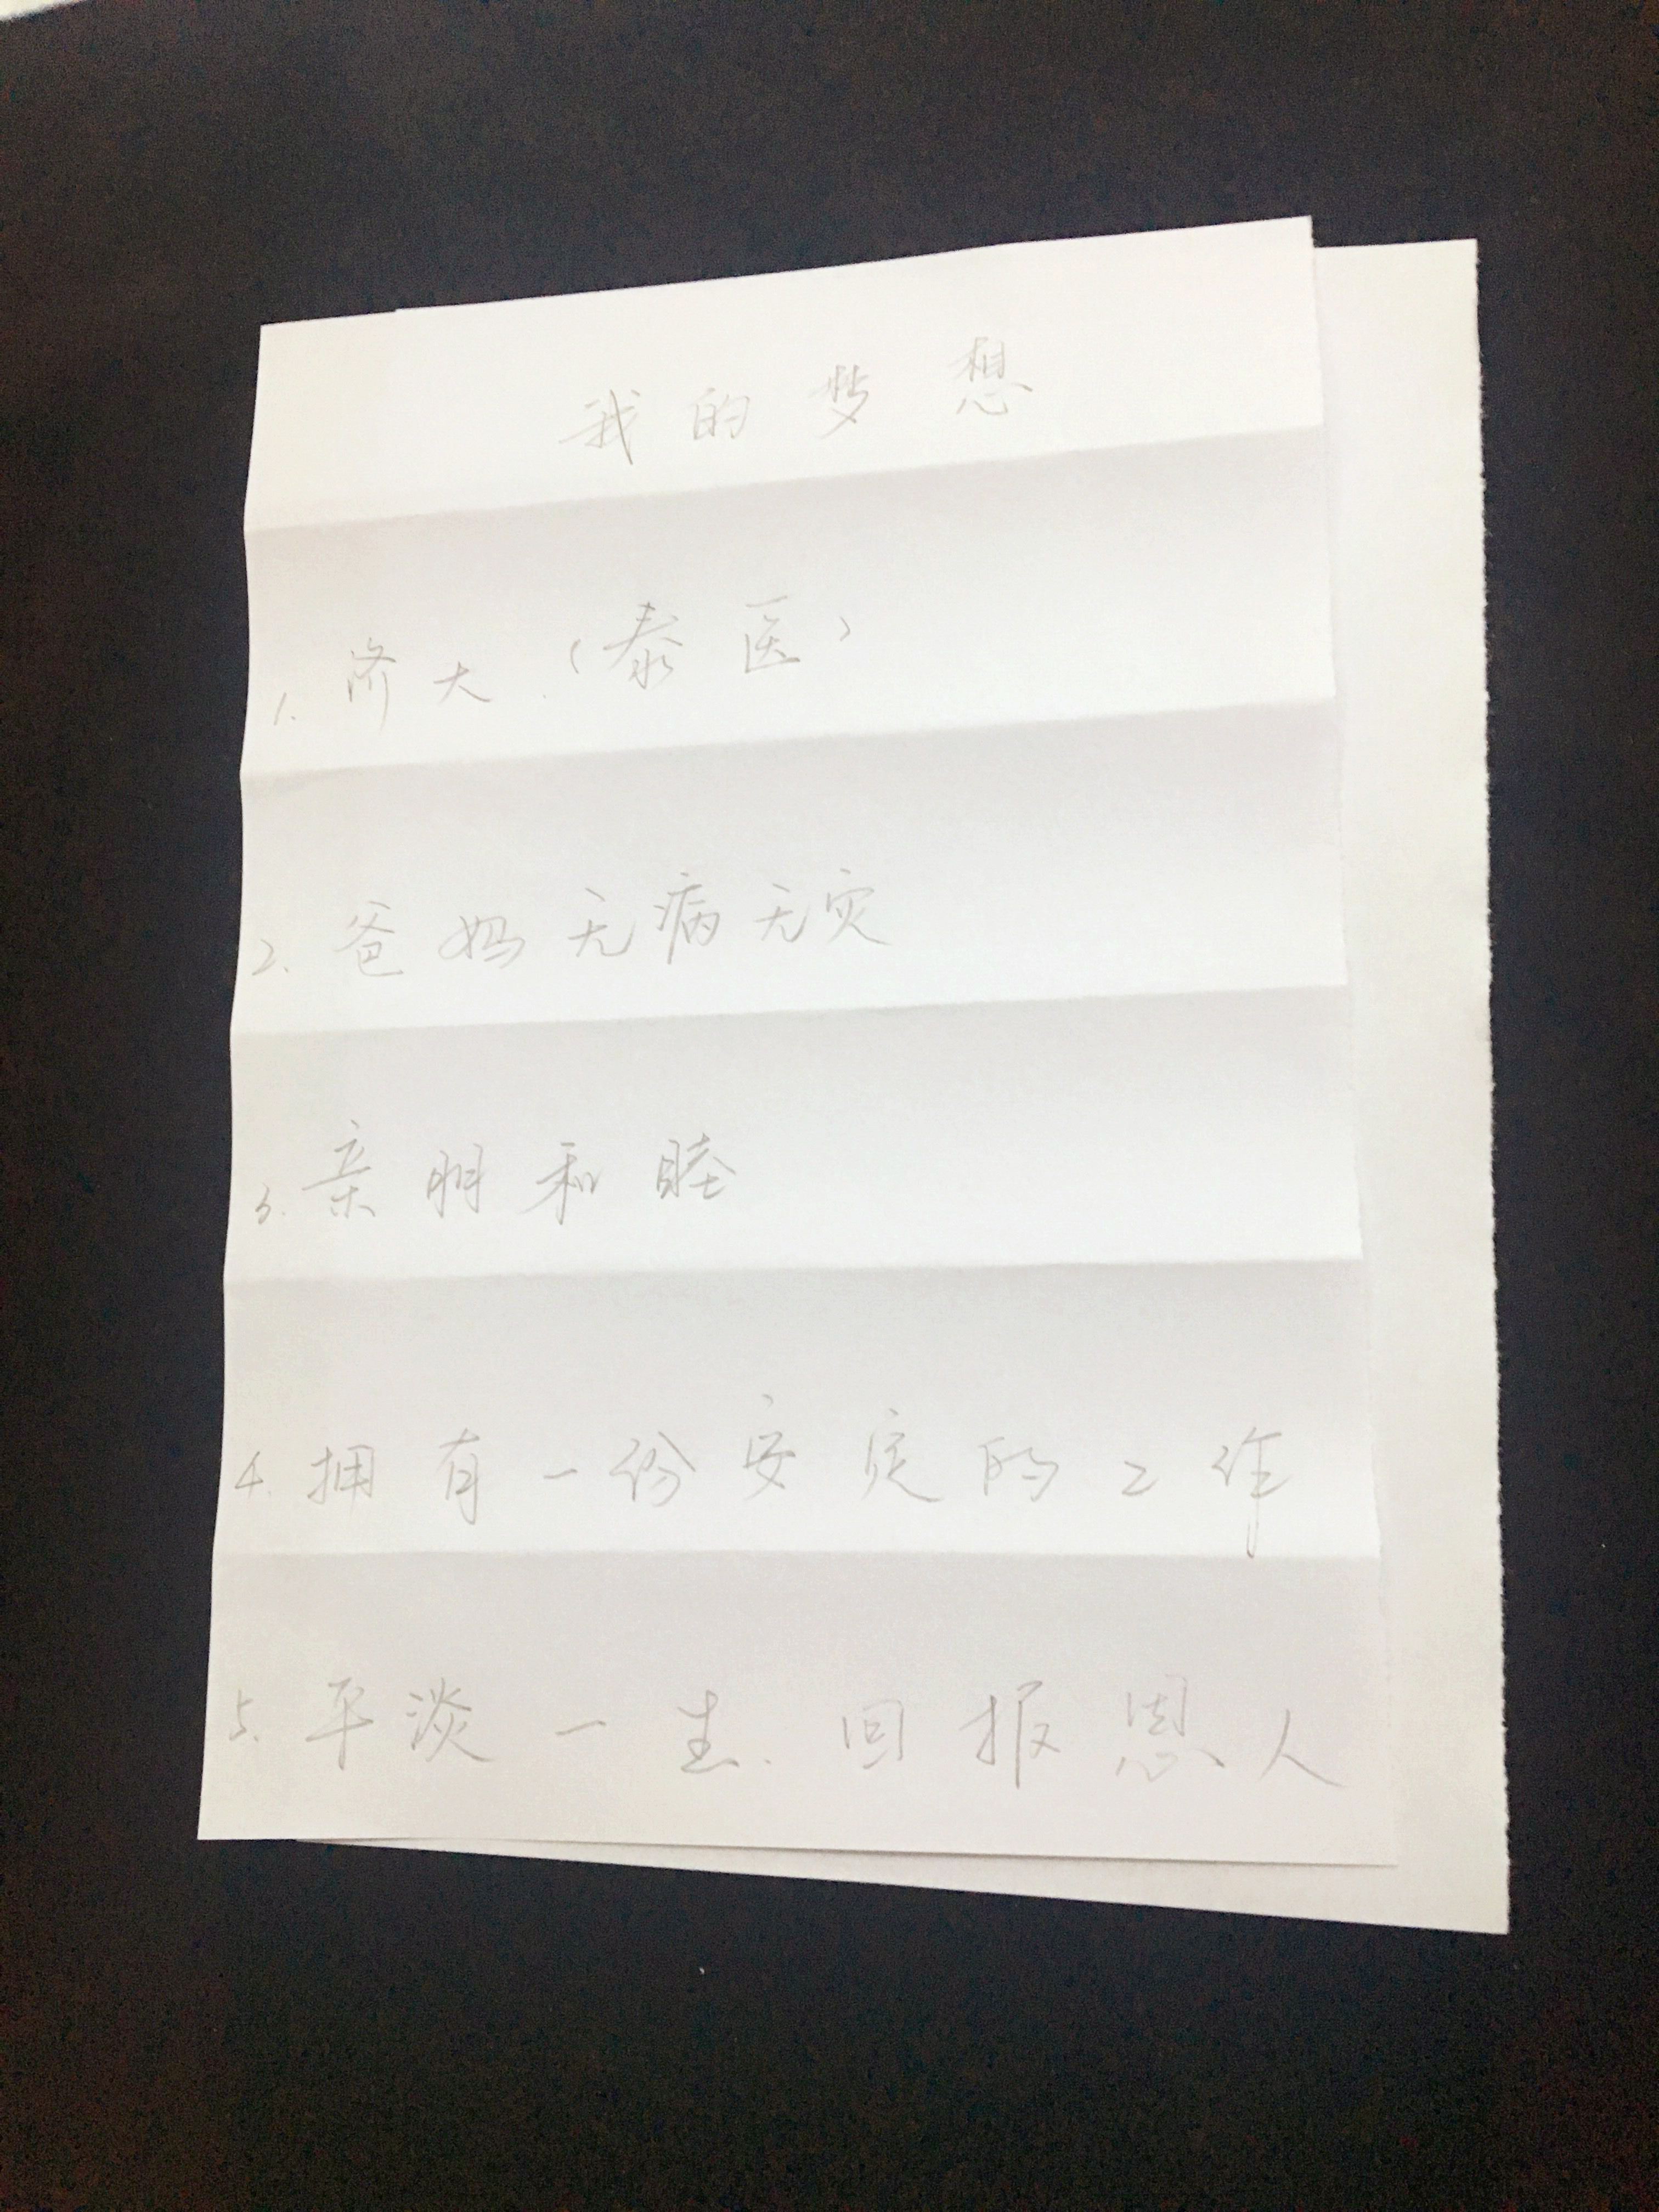 我的梦想
1. 济大（泰医）
2. 爸妈无病无灾
3. 亲朋和睦
4. 拥有一份安定的工作
5. 平淡一生. 回报恩人